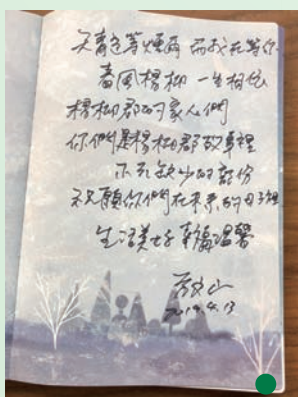 天青色等煙雨 而我在等你
春風楊柳 一生相依
楊柳郡的家人們
你們是楊柳郡故事裡
不可缺少的部份
祝願你們在未來的日子裡
生活美好 幸福溫馨
方文山
2019.4.13